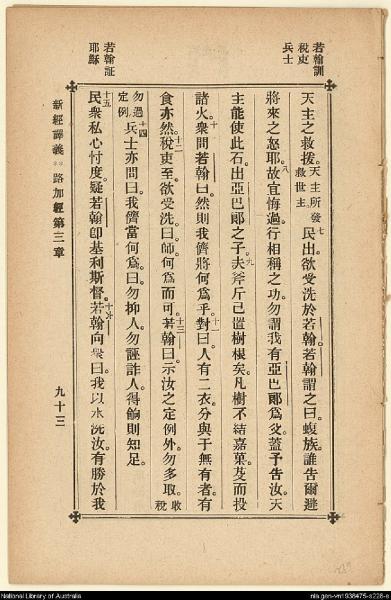 若翰訓
稅吏
兵士
若翰証
耶穌
天主之救援。天主所發救世主七民出欲受洗於若翰。若翰謂之曰。蝮族。誰告爾避
將來之怒耶。八故宜悔過。行相稱之功。勿謂我有亞巴郎爲父。蓋予告汝。天
主能使此石。出亞巴郎之子。九夫斧斤已置樹根矣。凡樹不結嘉菓。芟而投
諸火。十衆問若翰曰。然則我儕將何爲乎。十一對曰。人有二衣。分與于無有者。有
食亦然。十二稅吏至。欲受洗曰。師。何爲而可。十三若翰曰。示汝之定例外。勿多取。收稅
勿過定例。十四兵士亦問曰。我儕當何爲。曰。勿抑人。勿誣詐人。得餉則知足。
十五民衆私心忖度。疑若翰卽基利斯督。十六若翰向衆曰。我以水洗汝。有勝於我
新經譯義 路加經第三章 九十三
National Library of Australia
nla.gen-vn1938475-s228-e